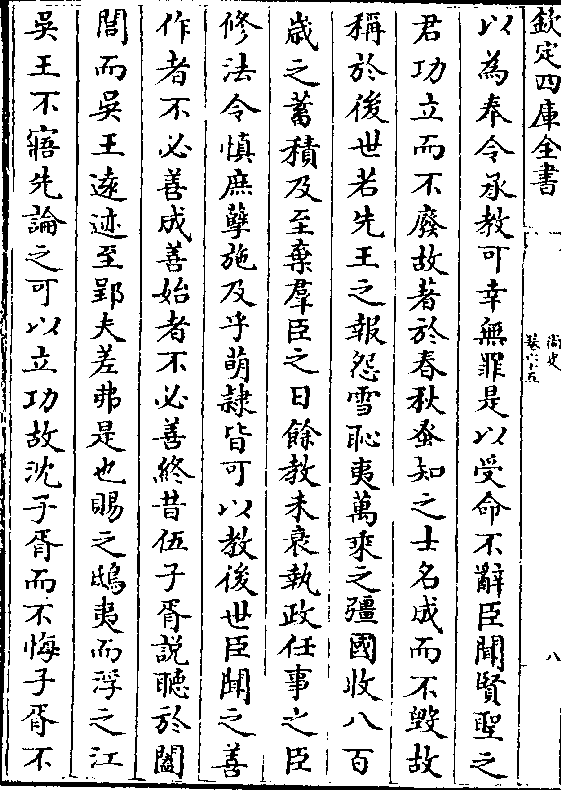 欽定四庫全書
尚史
卷六十五
八
以為奉令承教可幸無罪是以受命不辭臣聞賢聖之
君功立而不廢故著於春秋蚤知之士名成而不毀故
稱於後世若先王之報怨雪恥夷萬乘之彊國收八百
歲之蓄積及至棄羣臣之日餘教未衰執政任事之臣
修法令慎庶孽施及乎萌隸皆可以教後世臣聞之善
作者不必善成善始者不必善終昔伍子胥說聽於闔
閭而吳王遠迹至郢夫差弗是也賜之鴟夷而浮之江
吳王不寤先論之可以立功故沈子胥而不悔子胥不